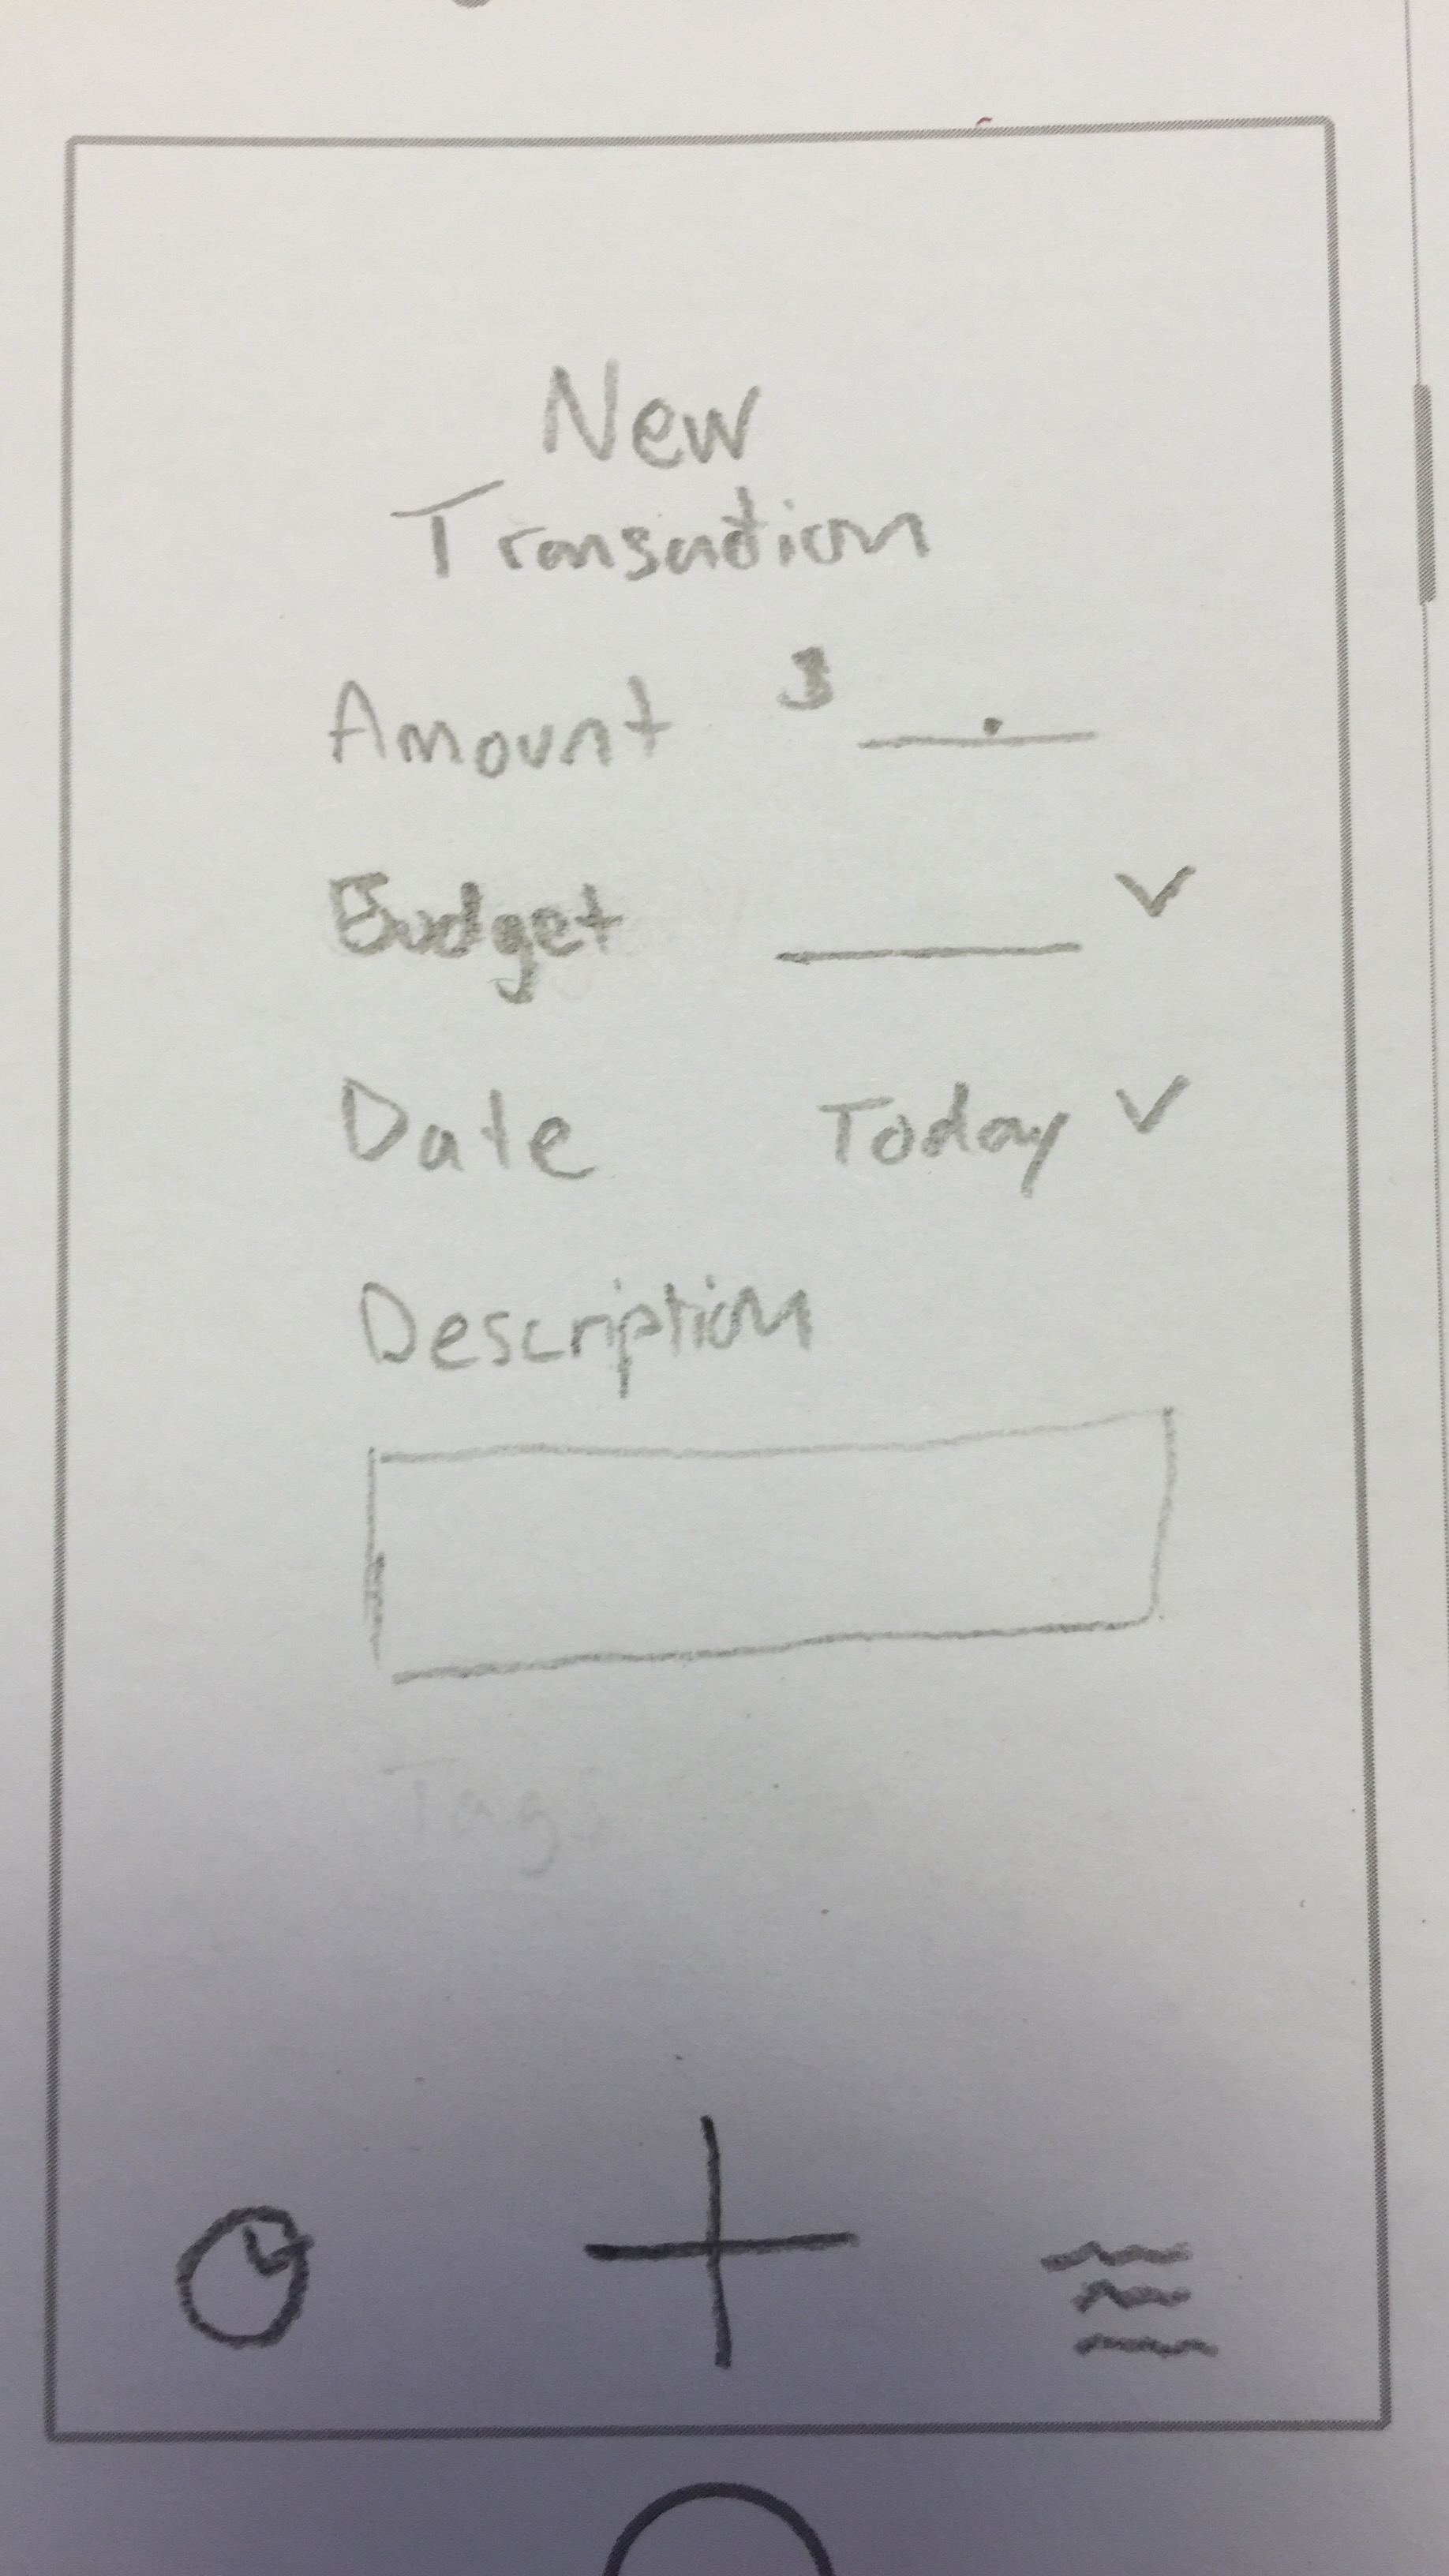 New
Transaction
Amount $ __.__
Budget ____
Date Today
Description
Tags